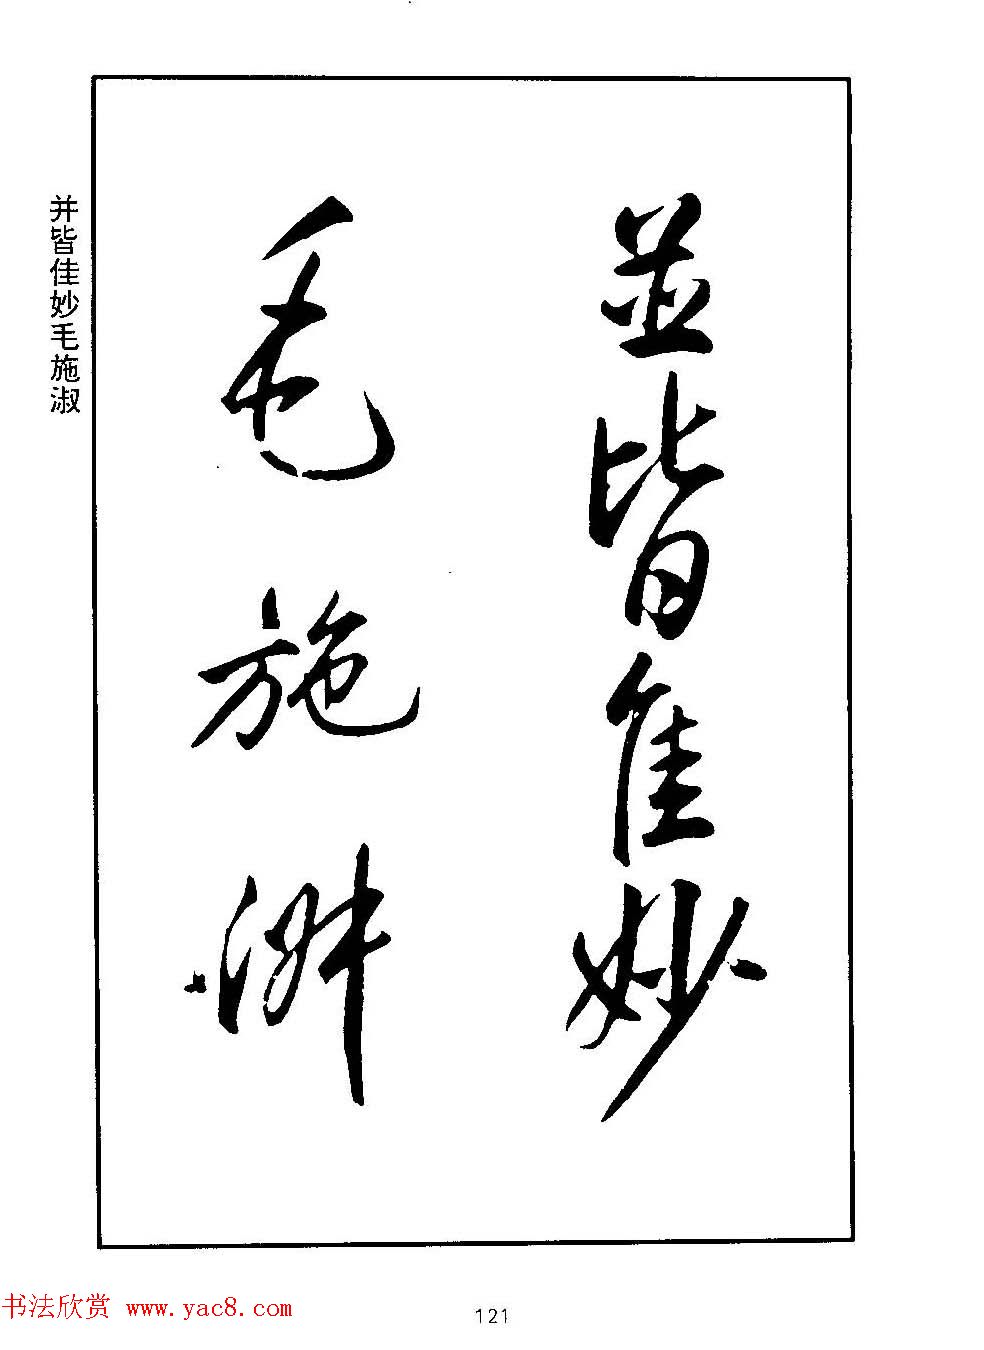 並皆佳妙
毛施淑
并皆佳妙毛施淑
书法欣赏 www.yac8.com
121